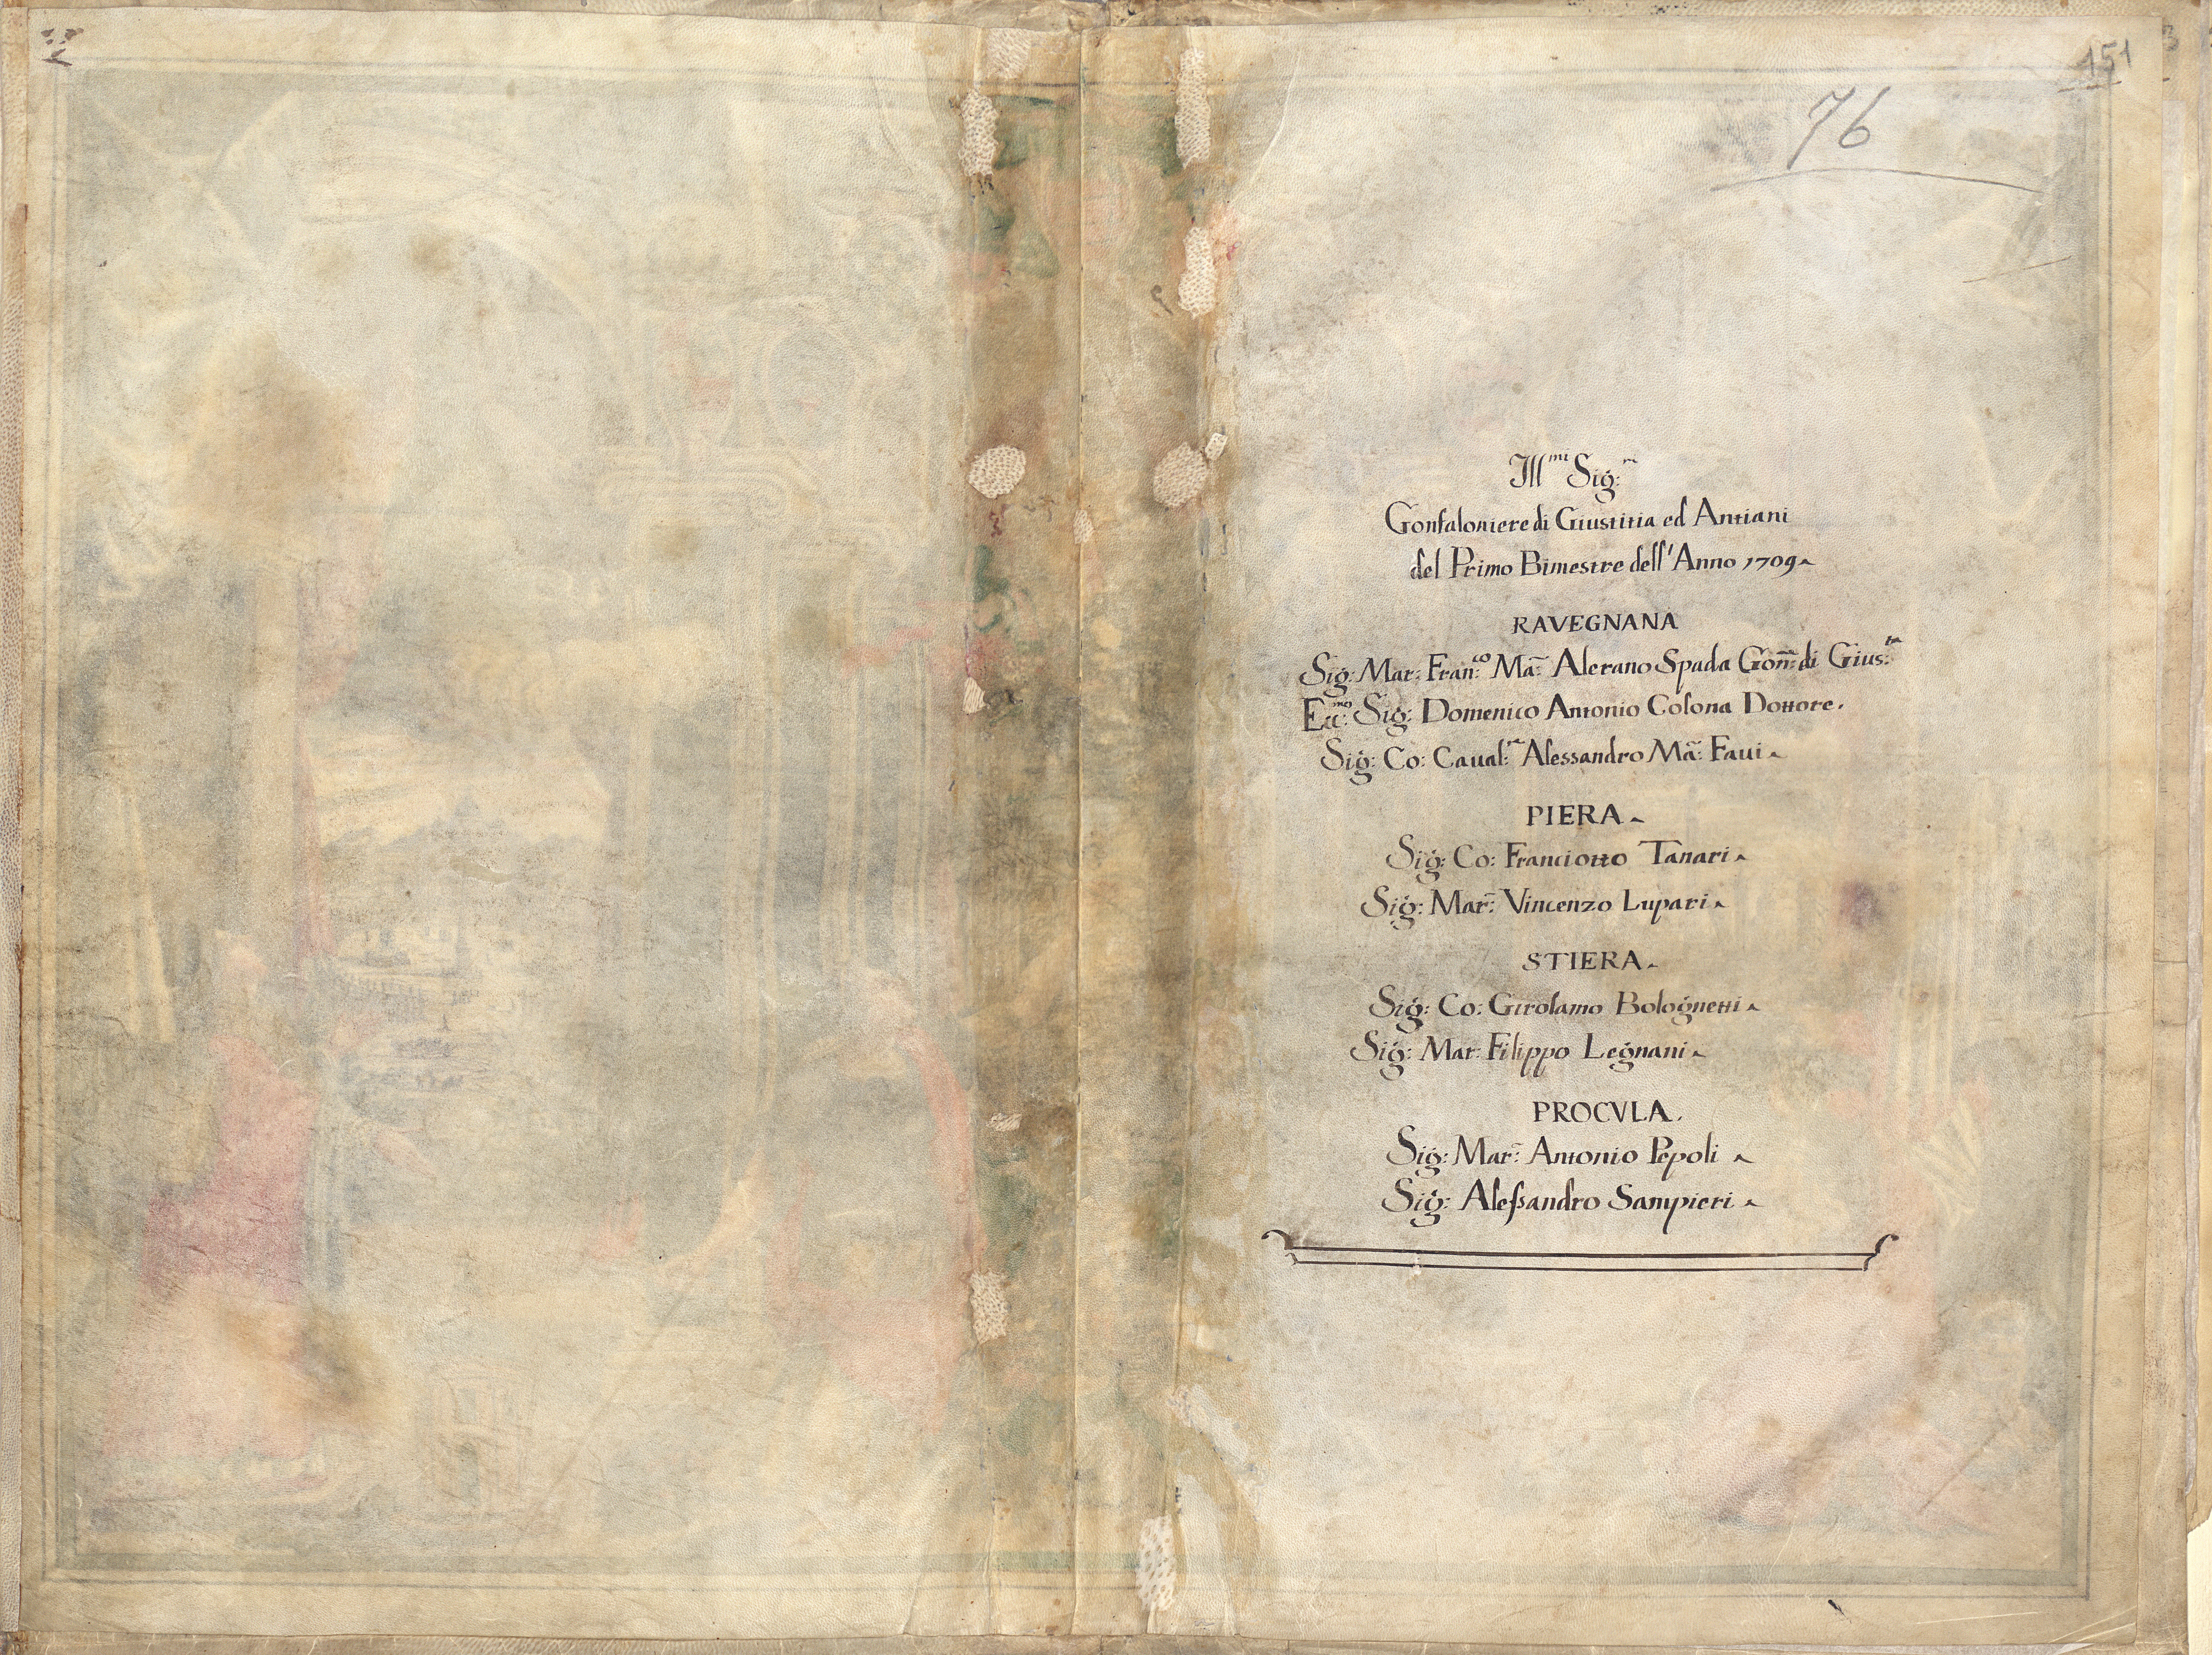 151
76
Ill.mi Sig:ri
Gonfaloniere di Giustitia ed Antiani
del Primo Bimestre dell'Anno 1709
RAVEGNANA
Sig: Mar: Fran:co Ma: Alerano Spada Gon: di Gius:ta
Ecc:mo Sig: Domenico Antonio Colona Dottore.
Sig: Co: Caual:re Alessandro Ma: Faui
PIERA
Sig: Co: Franciotto Tanari
Sig: Mar: Vincenzo Lupari
STIERA
Sig: Co: Girolamo Bolognetti
Sig: Mar: Filippo Legnani
PROCVLA.
Sig: Mar: Antonio Pepoli
Sig: Aleſsandro Sampieri